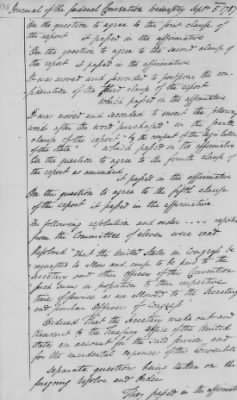 Journal of the federal Convention Wednesday Sept. 5. 1787
On the question to agree to the first clause of
the report it passed in the affirmative
On the question to agree to the second clause of
the report it passed in the affirmative
It was moved and seconded to postpone the con-
sideration of the third clause of the report
which passed in the affirmative
It was moved and seconded to insert the following
words after the word purchased in the fourth
clause of the report "by the consent of the legislature
of the State" which passed in the affirmative
On the question to agree to the fourth clause of
the report as amended
it passed in the affirmative
On the question to agree to the fifth clause
of the report it passed in the affirmative.
The following resolution and order reported
from the Committee of eleven were read
Resolved That the United States in Congress be
requested to allow and cause to be paid to the
Secretary and other officers of this Convention
such sums in proportion to their respective
times of service as are allowed to the Secretary
and similar officers of Congress
Ordered That the Secretary make out and
transmit to the Treasury office of the United
States an account for the said services, and
for the incidental expences of this Convention
Separate question being taken on the
foregoing resolve and order
They passed in the affirmative